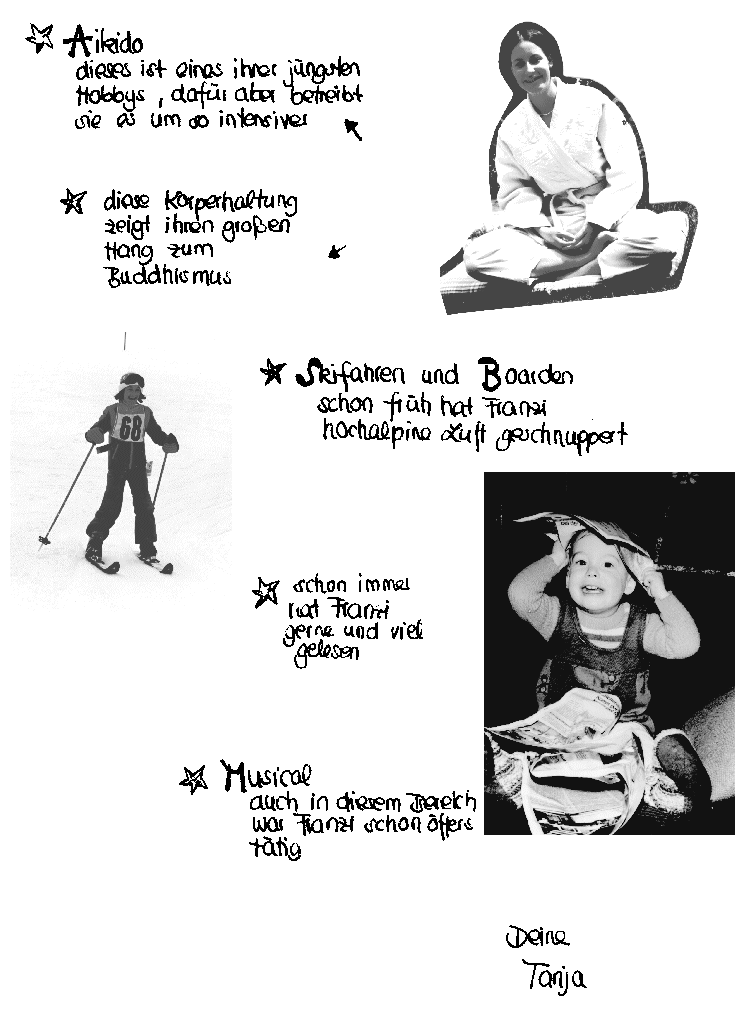 Aikido
dieses ist eines ihrer jüngsten
Hobbys, dafür aber betreibt
sie es um so intensiver
diese Körperhaltung
zeigt ihren großen
Hang zum
Buddhismus
Skifahren und Boarden
schon früh hat Franzi
hochalpine Luft geschnuppert
68
schon immer
hat Franzi
gerne und viel
gelesen
Musical
auch in diesem Bereich
war Franzi schon öfters
tätig
Deine
Tanja